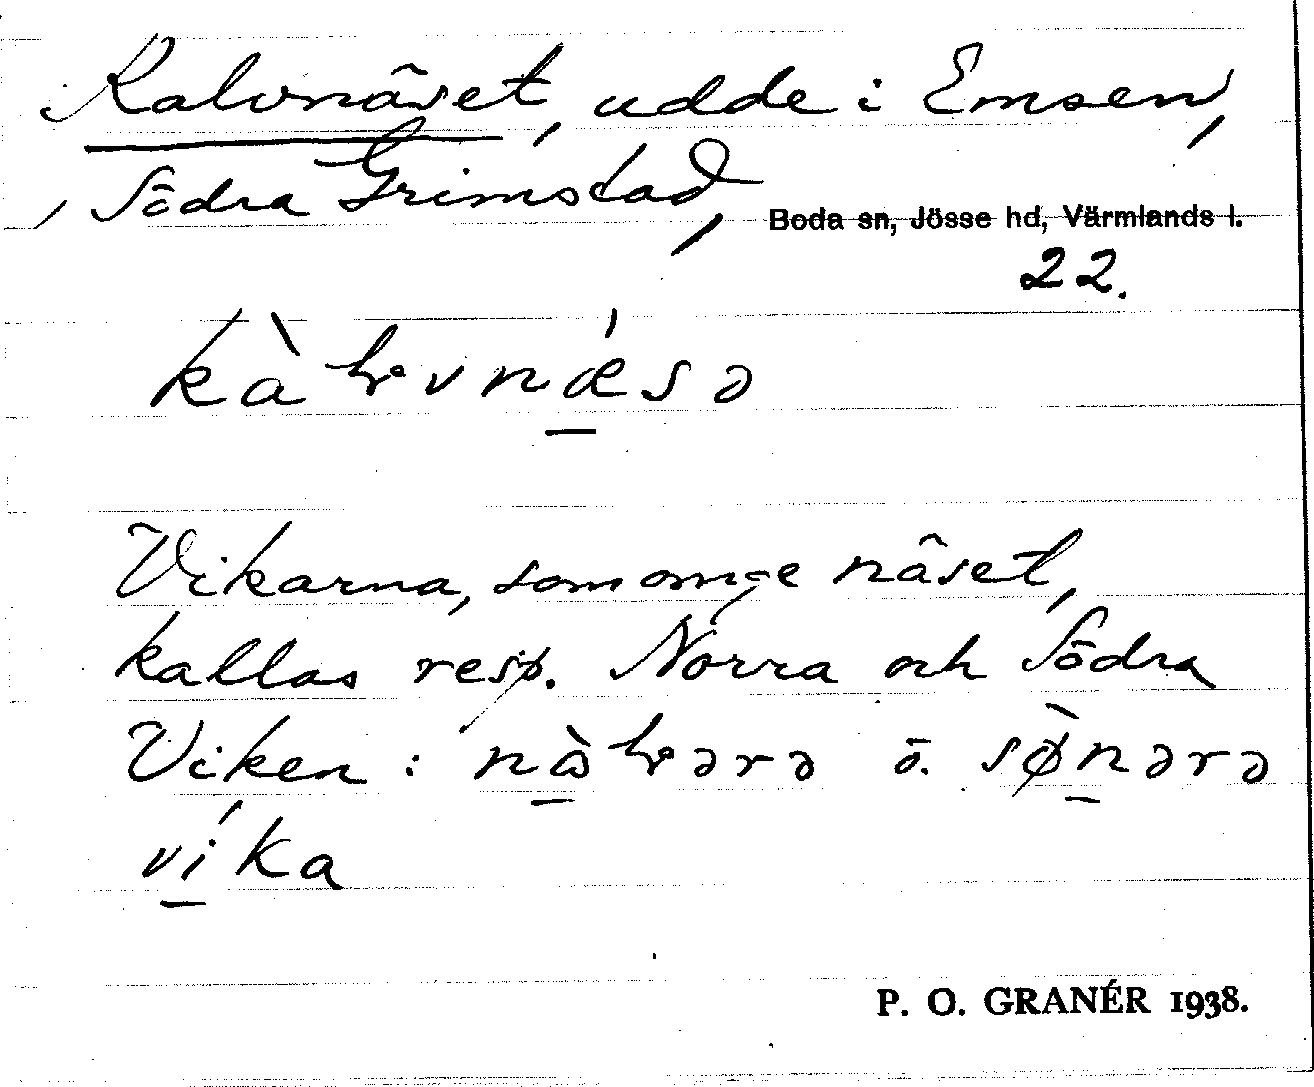 Kalvnäset, udde i Emsen,
Södra Grimstad, Boda sn, Jösse hd, Värmlands l.
22.
Vikarna, som omge näset,
kallas resp. Norra och Södra
Viken :
vı́ka
P. O. GRANÉR 1938.